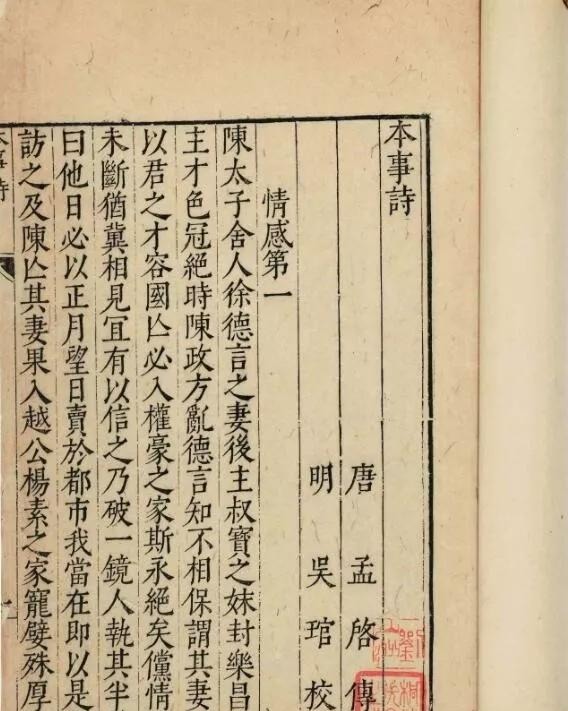 本事詩
唐孟啓傳
明吳琯校
情感第一
陳太子舍人徐德言之妻後主叔寶之妹封樂昌
主才色冠絕時陳政方亂德言知不相保謂其妻
以君之才容國亾必入權豪之家斯永絕矣儻情
未斷猶冀相見冝有以信之乃破一鏡人執其半
曰他日必以正月望日賣於都市我當在即以是
訪之及陳亾其妻果入越公楊素之家寵嬖殊厚
本事詩